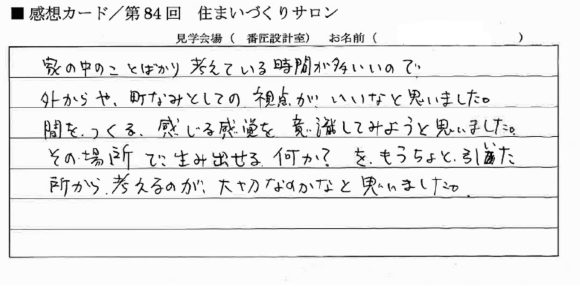 ■ 感想カード／第84回　住まいづくりサロン
見学会場（　番匠設計室）　お名前（　　　　　　　　　）
家の中のことばかり考えている時間が多いので
外からや、町なみとしての視点が、いいなと思いました。
間を、つくる、感じる感覚を意識してみようと思いました。
その場所で、生み出せる何か？を、もうちょと、引いた
所から、考えるのが、大切なのかなと思いました。